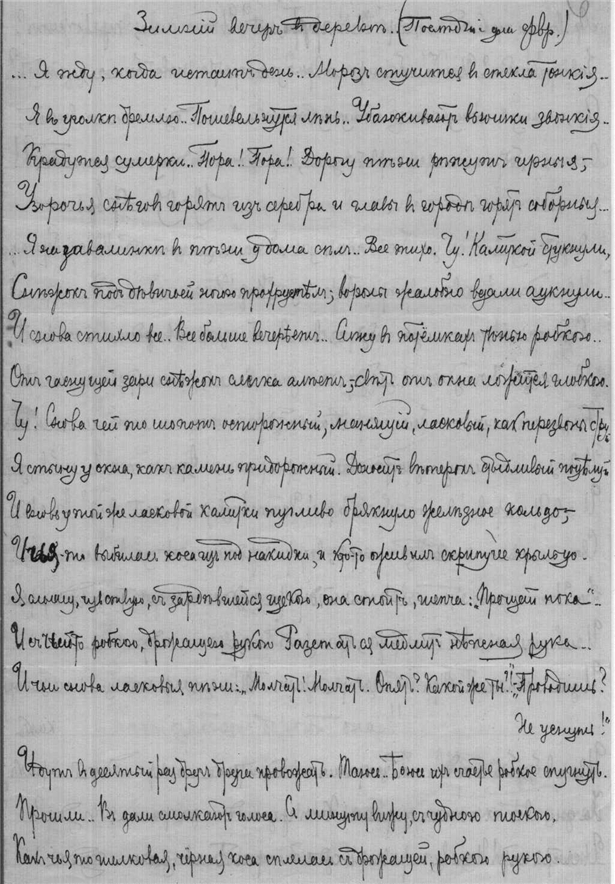 Зимній вечеръ въ деревнѣ.. (Послѣдній день февр.)
... Я жду, когда истаетъ день.. Морозъ стучится въ стекла тонкія..
Я въ уголкѣ дремлю.. Пошевельнуться лѣнь.. Убаюкиваютъ вьюшки звонкія..
Крадутся сумерки.. Пора! Пора! Дорогу тѣни рѣжутъ черныя,-
Узорочья снѣговъ горятъ изъ серебра и главы въ городѣ горятъ соборныя...
... Я на завалинкѣ въ тѣни у дома сѣлъ.. Все тихо. Чу! Калиткой стукнули,
Снѣжокъ подъ дѣвичьей ногою прохрустѣлъ; вороны жалобно вдали аукнули..
И снова стихло все.. Все больше вечерѣетъ.. Сижу въ потёмкахъ тѣнью робкою..
Отъ гаснущей зари снѣжокъ слегка алѣетъ,- свѣтъ отъ окна ложится
Чу! Снова чей то шопотъ осторожный, манящій, ласковый, какъ перезвоны струй
Я стыну у окна, какъ камень придорожный. Доноситъ вѣтерокъ стыдливый поцѣлуй
И вновь у той же ласковой калитки пугливо брякнуло желѣзное кольцо,-
И чья-то выбилась коса изъ под накидки, и кто-то оживилъ скрипучее крыльцо.
Я слышу, чувствую, съ зардѣвшейся щекою, она стоитъ, шепча: "Прощай пока"..
И съ чьей-то робкою, дрожащею рукою Разстаться медлитъ нѣжная рука...
И чьи снова ласковыя пѣни: "Молчать! Молчать. Опять? Какой же ты"!! "Проводишь?
Не уснуть!"
Идутъ въ десятый разъ другъ друга провожать. Таюсь.. Боюсь ихъ счастье робкое спугнуть.
Прошли.. Въ дали смолкаютъ голоса. А минуту вижу, съ чудною тоскою,
Какъ чья то шелковая, чёрная коса сплелась съ дрожащей, робкою рукою.